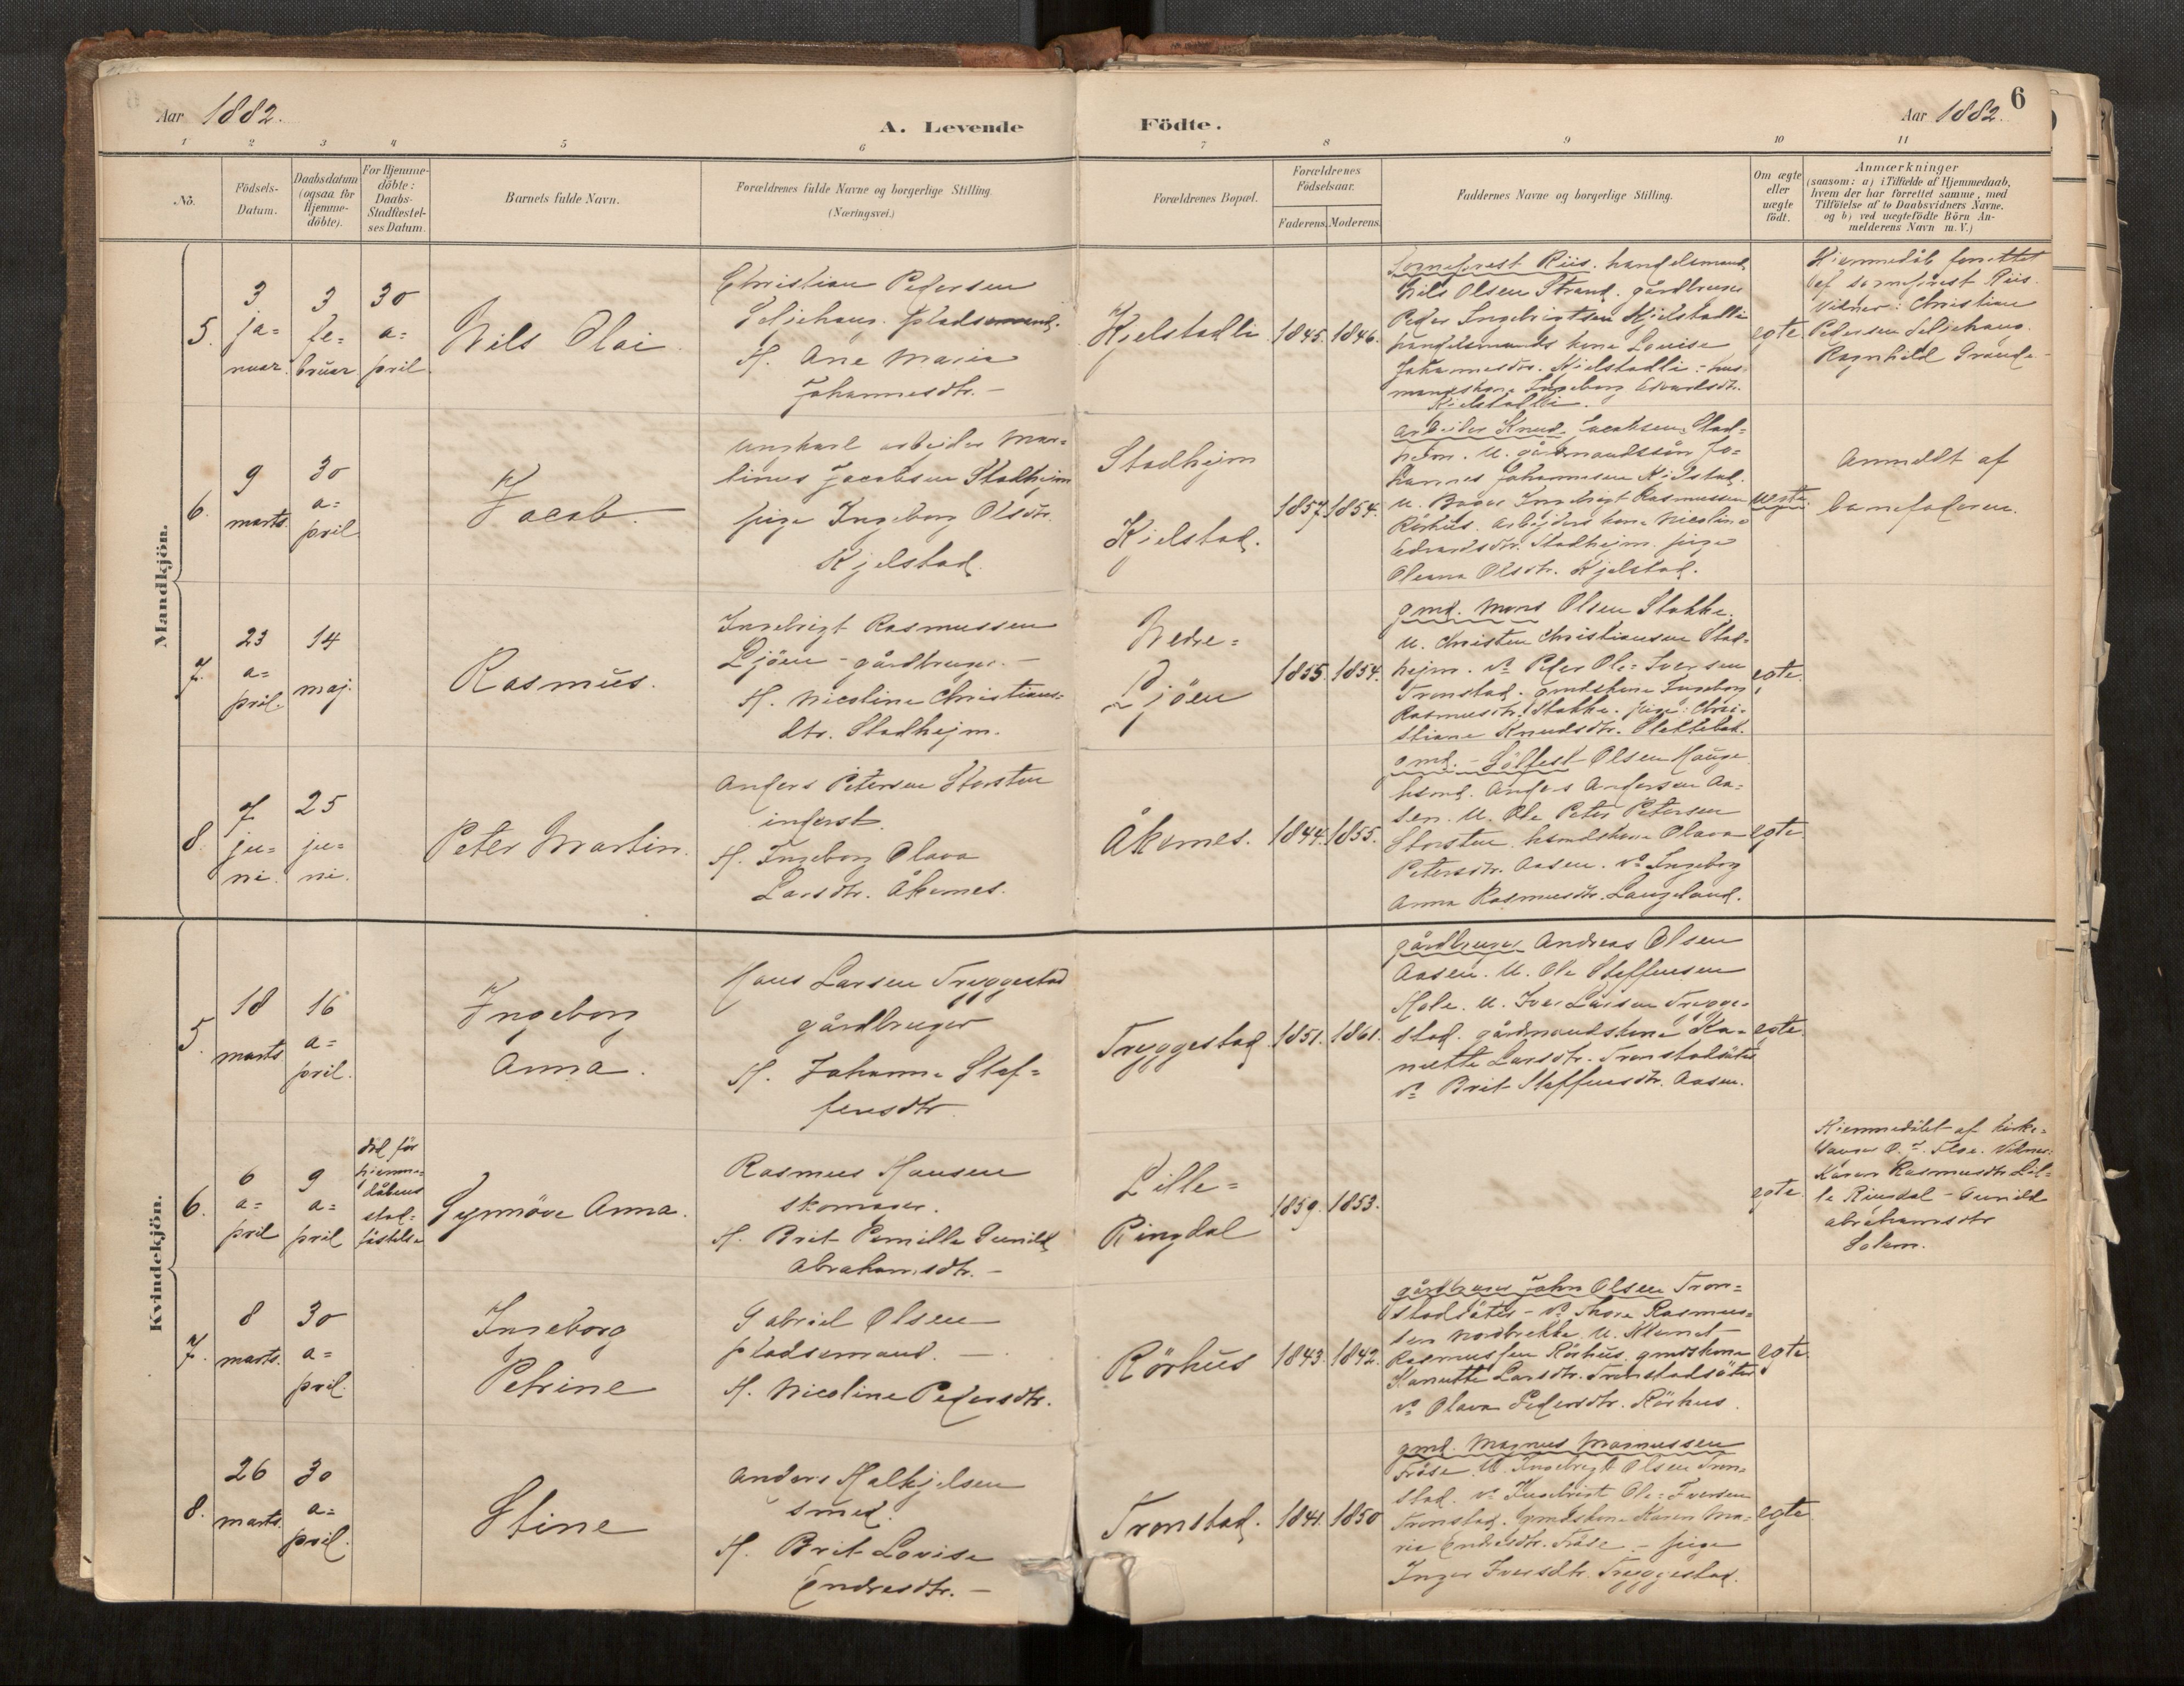 Aar 1882.
A. Levende Födte.
Aar 1882.
6
1 2 3 4 5 6 7 8 9 10 11
No.
Födsels-
Datum.
Daabsdatum
(ogsaa for
Hjemme-
döbte).
For Hjemme-
döbte:
Daabs-
Stadfæstel-
ses Datum.
Barnets fulde Navn.
Forældrenes fulde Navne og borgerlige Stilling.
(Næringsvei.)
Forældrenes Bopæl.
Forældrenes
Födselsaar.
Faderens. Moderens.
Faddernes Navne og borgerlige Stilling.
Om ægte
eller
uægte
födt.
Anmærkninger
(saasom: a) i Tilfælde af Hjemmedaab,
hvem der har forrettet samme, med
Tilföielse af to Daabsvidners Navne.
og b) ved uægtefödte Börn An-
melderens Navn m. V.)
Mandkjön.
5.
3
ja-
nuar.
3
fe-
bruar
30
a-
pril
Nils Olai
Christian Pedersen
Seljehaug. pladsmand.
H. Ane Maria
Johannesdtr. -
Kjelstadli
1845. 1846.
Sorneprest Riis. handelsmand
Nils Olsen Strand. gårdbruger
Peder Ingebrigtsen Kjelstadli
handelsmands kone Lovise
Johannesdtr. Kjelstadli - hus-
mandskone Ingeborg Edvardsdtr.
Kjelstadli.
egte
Hiemmedåb forrettet
af sorneprest Riis
Vidner: Christian
Pedersen Seljehaug
Ragnhild Grande
6.
9
marts.
30
a-
pril
Jacob.
ungkarl arbejder Mar-
tinus Jacobsen Stadhejm
pige Ingeborg Olsdtr
Kjelstad.
Stadhejm
Kjelstad.
1857. 1854.
arbeider Knud Jacobsen Stad-
hejm. U. gårdmandssön Jo-
hannes Johannesen Kjelstad.
U. Ingebrigt Rasmussen
Rörhus. arbejders kone Nicoline
Edvardsdtr. Stadhejm. pige
Oleana Olsdtr. Kjelstad.
uegte
Anmeldt af
barnefaderen.
7.
23
a-
pril.
14
maj.
Rasmus.
Ingebrigt Rasmussen
Ljöen - gårdbruger. -
H. Nicoline Christians-
dtr. Stadhejm.
Nedre-
Ljöen
1855. 1854.
gmd. Mons Olsen Stakke.
U. Christen Christiansen Stad-
hejm. do Peder Ole-Iversen
Tronstad. gmdskone Ingeborg
Rasmusdtr. Stakke. pige: Chri-
stiane Knudsdtr. Slettebak.
egte.
8.
7
ju-
ni.
25
ju-
ni.
Peter Martin.
Anders Petersen Storsten
inderst.
H. Ingeborg Olava
Larsdtr. Åkernes.
Åkernes.
1844. 1855.
gmd. - Sölfest Olsen Hauge
hsmd. Anders Andersen Aa-
sen. U. Ole Peter Petersen
Storsten hsmdskone Olava
Petersdtr. Aasen. do Ingeborg
Anna Rasmusdtr. Langeland.
egte
Kvindekjön.
5.
18
marts
16
a-
pril.
Ingeborg
Anna.
Hans Larsen Tryggestad
gårdbruger
H. Johanne Stef-
fensdtr.
Tryggestad
1851. 1861.
gårdbruger Andreas Olsen
Aasen. U. Ole Steffensen
Hole. U. Iver Larsen Trygge-
stad. gårdmandskone Ka-
nutte Larsdtr. Tronstadsäter
do Brit Steffensdtr. Aasen.
egte.
6.
6
a-
pril
9
a-
pril
död för
hiemme-
dåbens
stad-
fästelse
Synnöve Anna.
Rasmus Hansen
skomager.
H. Brit Pernille Gunild
Abrahamsdtr. -
Lille-
Ringdal
1859. 1853.
egte.
Hiemmedöbt af kirke-
sanger O. J. Floe. Vidner:
Karen Rasmusdtr Lil-
le Ringdal - Gunild
Abrahamsdtr
Solem.
7.
8
marts.
30
a-
pril.
Ingeborg
Petrine
Gabriel Olsen
pladsmand. -
H. Nicoline Pedersdtr.
Rörhus
1843. 1842.
gårdbruger John Olsen Tron-
stadsäter - do Thore Rasmus-
sen Nordbrekke. U. Knud
Rasmussen Rörhus. gmdskone
Kanutte Larsdtr. Tronstadsäter
do Olava Pedersdtr. Rörhus.
egte
8.
26
marts.
30
a-
pril.
Stine
Anders Halkjelsen
smed.
H. Brit Lovise
Endresdtr. -
Tronstad.
1841. 1850
gmd. Magnus Magnussen
Fröse. U. Ingebrigt Olsen Tron-
stad. do Ingebrigt Ole-Iversen
Tronstad. gmdskone Karen Ma-
rie Endresdtr. Fröse. - pige
Inger Iversdtr. Tryggestad.
egte